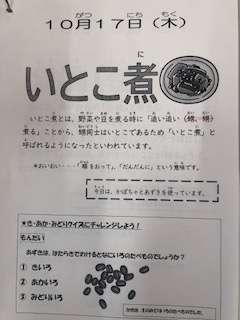 がつ にち もく
10月17日(木)
に
いとこ煮
いとこ煮とは、野菜や豆を煮る時に「追い追い(甥、甥)
煮る」ことから、甥同士はいとこであるため「いとこ煮」と
呼ばれるようになったといわれています。
*おいおい・・・「順をおって」、「だんだんに」という意味です。
今日は、かぼちゃとあずきを使っています。
★き・あか・みどりクイズにチャレンジしよう!
もんだい
あずきは、はたらきでわけるとなにいろのたべものでしょうか?
① きいろ
② あかいろ
③ みどりいろ